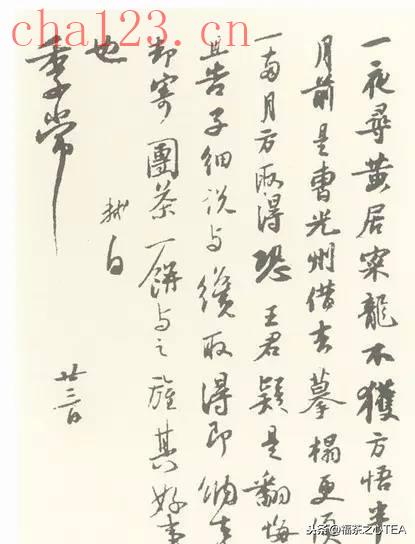 cha123.cn
一夜尋黃居寀龍不獲方悟半
月前是曹光州借去摹搨更須
一兩月方取得恐王君疑是翻悔
且告子細說与纔取得即納去
却寄團茶一餅与之旌其好事
也
軾白
季常
廿三日
头条@福茶之心TEA